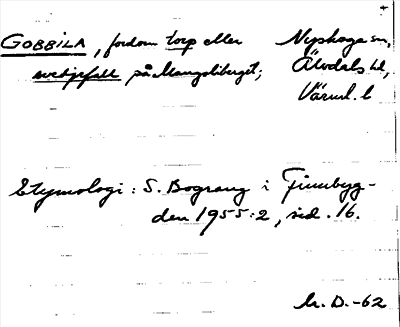 GOBBILA, fordom torp eller
svedjefall på Mangsliberget;
Nyskoga sn,
Älvdals hd,
Värml. l
Etymologi: S. Bograng i Finnbyg-
den 1955:2, sid. 16.
M. D. -62